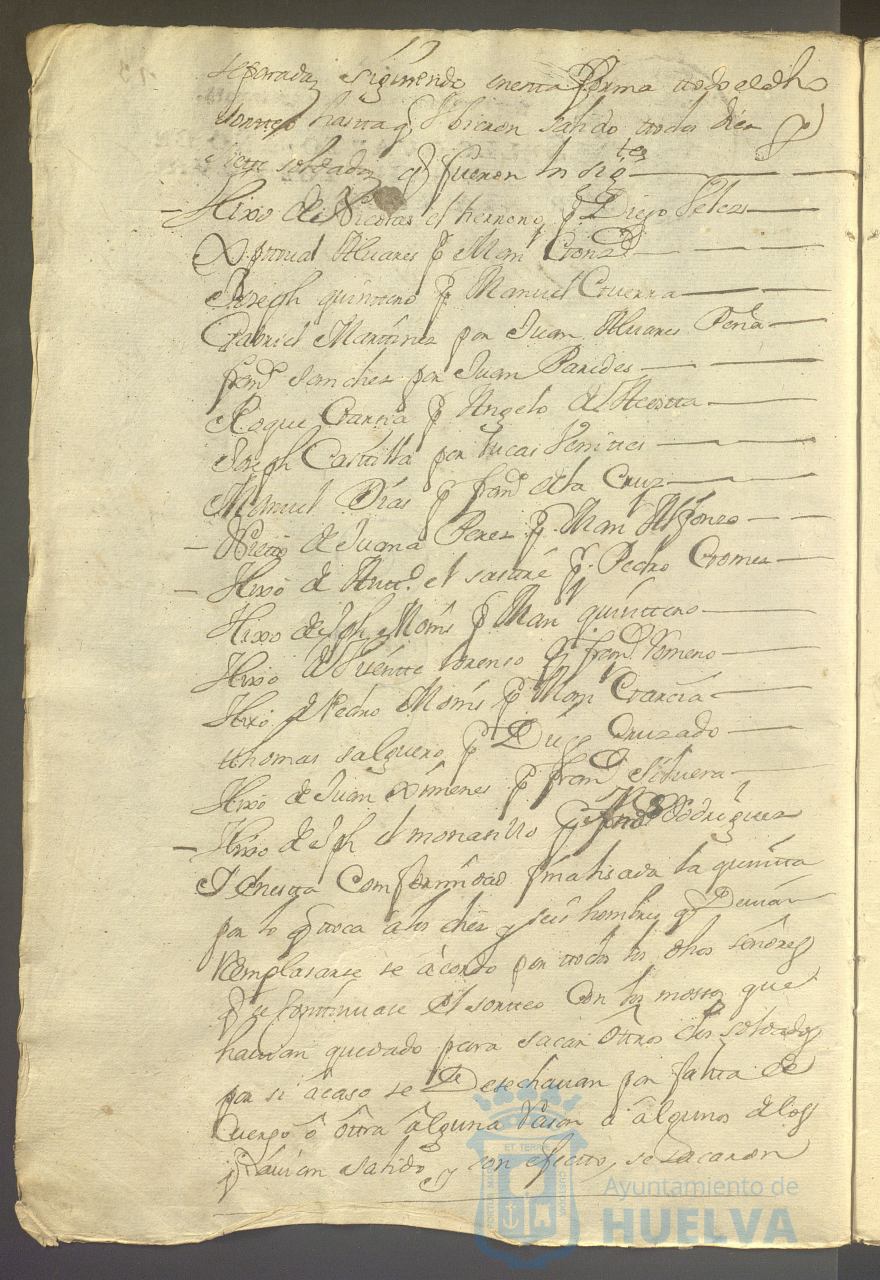 sefirrada, sigiriendo en esta forma ttodo el dho
sorrtteo hastta q hubieron salido ttodos diez y
siette soldados q fueron los sigtes
Hixo de Nicolas el herrero, p. Diego Peleas
Xpttoual Aluares p Man Gonz
Joseph quinttero p Manuel Guerra
Gabriel Marttines por Juan Aluares Peña
franco Sanches por Juan Parides
Roque Garcia p Angelo de Acostta
Joseph Casttilla por Lucas Venittes
Manuel Dias p franco de la Cruz
Nietto de Juana Perez p. Man Alfonso
Hixo de Antto el sastre p. Pedro Gomez
Hixo de Jph Moñis p Man quinttero
Hixo de Visentte Lorenso p franco Romero
Hixo de Pedro Moñis p Man Garcia
thomas salguero p Diego Cruzado
Hixo de Juan Ximenes p franco Siluera
Hixo de Jph el monasillo p Rodriguez
I en estta Comformidad finalisada la quintta
por lo q ttoca a los diez y seis hombres q Deuian
Remplasarse se acordo por ttodos los dhos señores
q se conttinuase el sortteo Con los mosos que
hauian quedado para sacar ottros dies soldados
por si acaso se Desechauan por faltta de
Cuerpo o ottra alguna rason a algunos de los
q hauian salido, y con efectto, se sacaron
ET TERRE
CUSTODIA
Ayuntamiento de
HUELVA